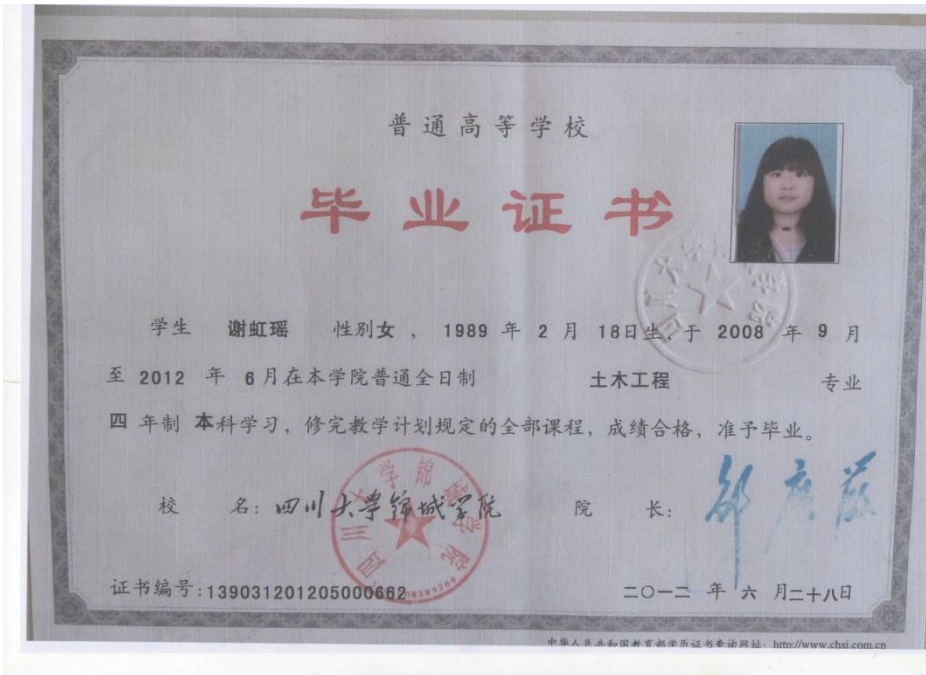 普通高等学校
毕业证书
学生 谢虹瑶 性别女，1989 年 2 月 18日生，于 2008 年 9 月
至 2012 年 6月在本学院普通全日制 土木工程 专业
四 年制 本科学习，修完教学计划规定的全部课程，成绩合格，准予毕业。
校 名：四川大学锦城学院 院 长：
四川大学锦城学院
证书编号：139031201205000662 二〇一二 年 六 月二十八日
中华人民共和国教育部学历证书查询网址：http://www.chsi.com.cn